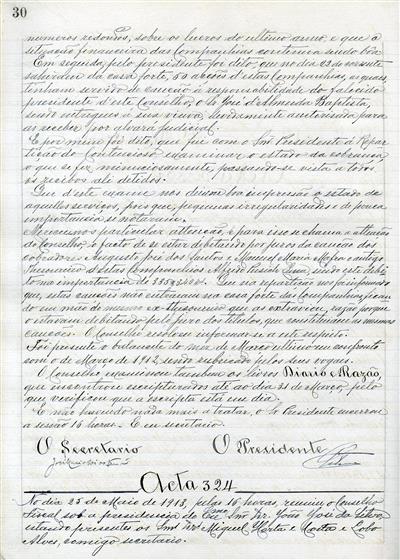 30
numeros redondos, sobre os lucros do ultimo anno, e que a
situação financeira das Companhias continua sendo bôa.
Em seguida, pelo presidente foi dito, que no dia 23 do corrente
sahiram da casa forte, 50 acções d'estas Companhias, as quaes
tenham servido de caução á responsabilidade do fallecido
presidente d'este Conselho, o Sr José d'Almeida Baptista,
sendo entregues á sua viuva, devidamente auctorisada para
as receber por alvará judicial.
E por mim foi dito, que fui com o Snr Presidente á Repar-
tição do Contencioso examinar o estado da cobrança
o que se fez minuciosamente, passando-se vista a todos
os recibos ali detidos.
Que d'este exame nos deixou bôa impressão o estado de
aquelles serviços, pois que, pequenas irregularidades e de pouca
importancia se notaram.
Mereceu-nos particular attenção, e para isso se chama a attenção
do Conselho, o facto de se estar debitando por juros da caução dos
cobradores Augusto José dos Santos e Manuel Maria Mapa o antigo
Thesoureiro d'estas Companhias Alfredo Lima, sendo este debi-
to na importancia de Que na repartição nos foi informado
que, estas cauções não entraram na casa forte das Companhias, fican-
do em mão do mesmo ex-thesoureiro que as extraviou, razão porque
o estavam debitando pelo juro dos titulos, que constituiam as mesmas
cauções. O Conselho resolveu informar-se a este respeito.
Foi presente o balancete do mez de Março ultimo em confronto
com o de Março de 1912, sendo rubricado pelos seus vogaes.
O Conselho examinou tambem os livros Diario e Razão,
que encontrou escripturados até ao dia 31 de Março, pelo
que verificou que a escripta está em dia.
E não havendo nada mais a tratar, o Sr Presidente encerrou
a sessão 16 horas. E eu secretario.
O Secretario O Presidente
Acta 324
No dia 25 de Maio de 1913, pelas 16 horas, reuniu o Conselho
Fiscal sob a presidencia do Exmo Snr. Dr. João José da Silva,
estando presentes os Snrs Drs Miguel Horta e Costa e Lobo
Alves, comigo secretario.